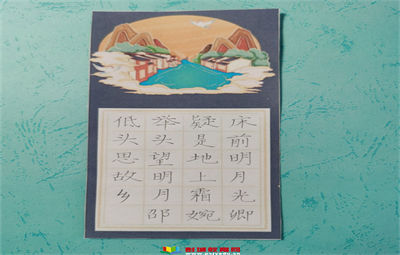 床前明月光
疑是地上霜
举头望明月
低头思故乡
邵婉卿